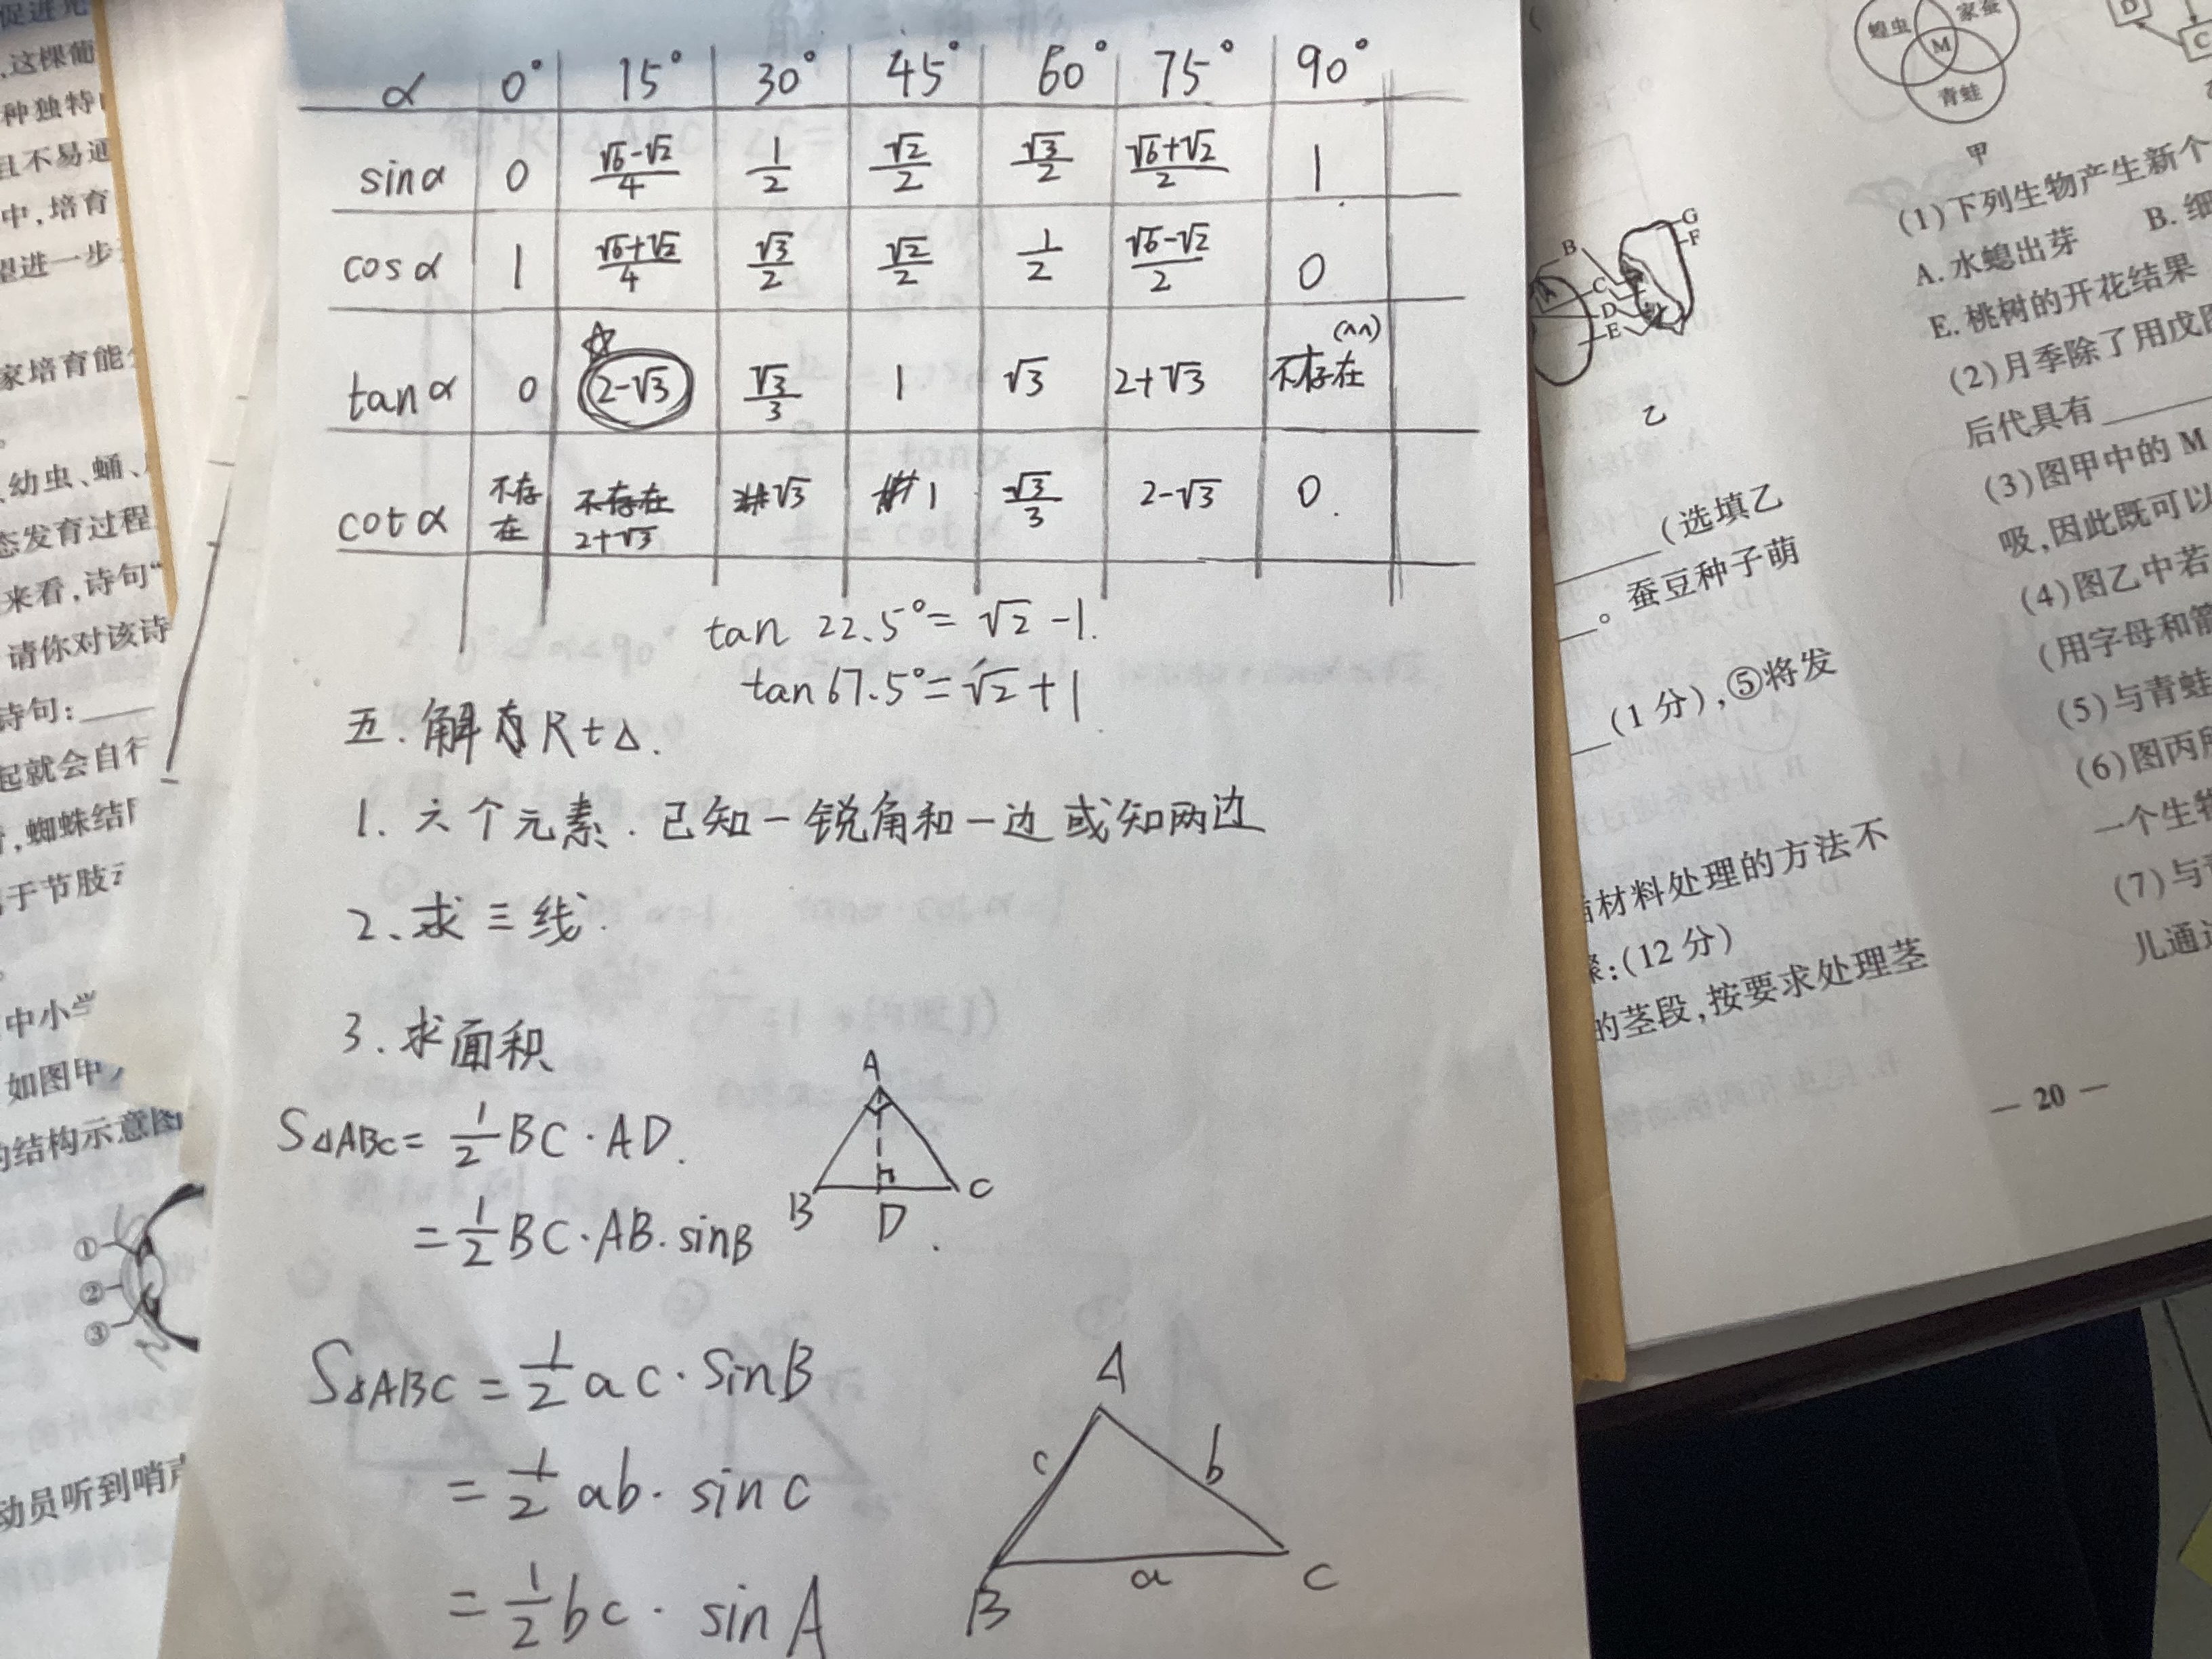 α 0° 15° 30° 45° 60° 75° 90°
sinα 0 (√6-√2)/4 1/2 √2/2 √3/2 (√6+√2)/2 1
cosα 1 (√6+√2)/4 √3/2 √2/2 1/2 (√6-√2)/2 0
tanα 0 2-√3 √3/3 1 √3 2+√3 不存在
cotα 不存在 不存在 2+√3 √3 1 √3/3 2-√3 0.
tan 22.5°=√2-1.
tan67.5°=√2+1
五.解Rt△.
1.六个元素.已知一锐角和一边或知两边
2、求三线.
3.求面积
S△ABC=1/2 BC·AD.
=1/2 BC·AB·sinB
A
B
D
C
S△ABC=1/2 ac·sinB
=1/2 ab·sinC
=1/2 bc·sinA
A
c
b
B
a
C
,这棵葡
种独特
且不易通
中,培育
望进一步
家培育能
、幼虫、蛹、
态发育过程
来看,诗句“
请你对该诗
诗句:
起就会自行
,蜘蛛结
于节肢
中小学
如图甲
的结构示意图
①
②
③
动员听到哨声
蝗虫
家蚕
M
青蛙
甲
D
C
B
G
F
A
C
D
E
乙
(1)下列生物产生新个
A.水螅出芽 B.细
E.桃树的开花结果
(2)月季除了用戊图
后代具有
(3)图甲中的 M
吸,因此既可以
(4)图乙中若
(用字母和箭
(5)与青蛙
(6)图丙所
一个生物
(7)与
儿通过
(选填乙
。蚕豆种子萌
(1分),⑤将发
材料处理的方法不
:(12分)
的茎段,按要求处理茎
— 20 —